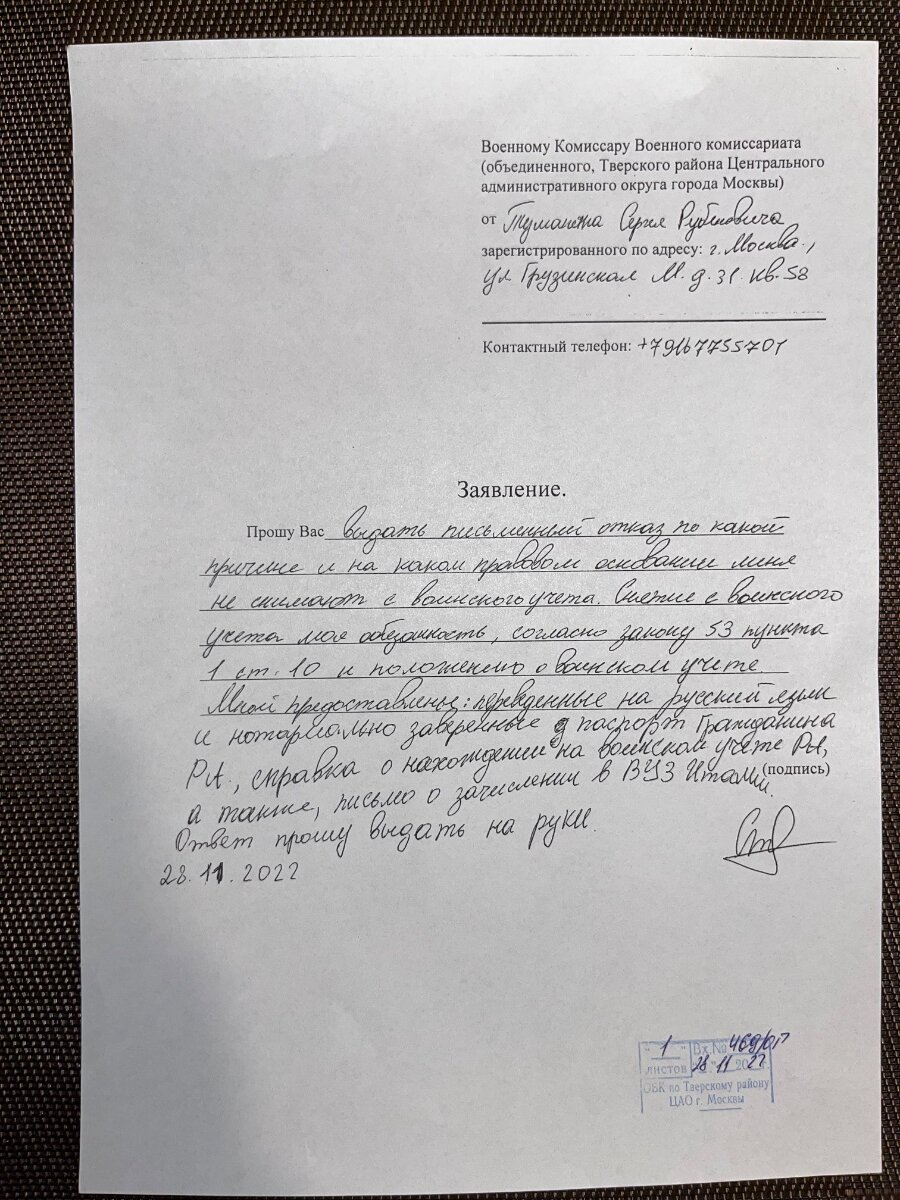 Военному Комиссару Военного комиссариата
(объединенного, Тверского района Центрального
административного округа города Москвы)
от Сергея Рубеновича
зарегистрированного по адресу: г. Москва,
ул Грузинская М. д. 31. кв. 58
Контактный телефон: +79167755701
Заявление.
Прошу Вас выдать письменный отказ по какой
причине и на каком правовом основании меня
не снимают с воинского учета. Снятие с воинского
учета моя обязанность, согласно закону 53 пункта
1 ст. 10 и положению о воинском учете
Мной предоставлены: переведенные на русский язык
и нотариально заверенные паспорт Гражданина
РА, справка о нахождении на воинском учете РА,
(подпись)
а также, письмо о зачислении в ВУЗ Италии.
Ответ прошу выдать на руки.
28.11.2022
"1" Вх.№ 469/ОП
листов 28 11 2022г.
ОВК по Тверскому району
ЦАО г. Москвы